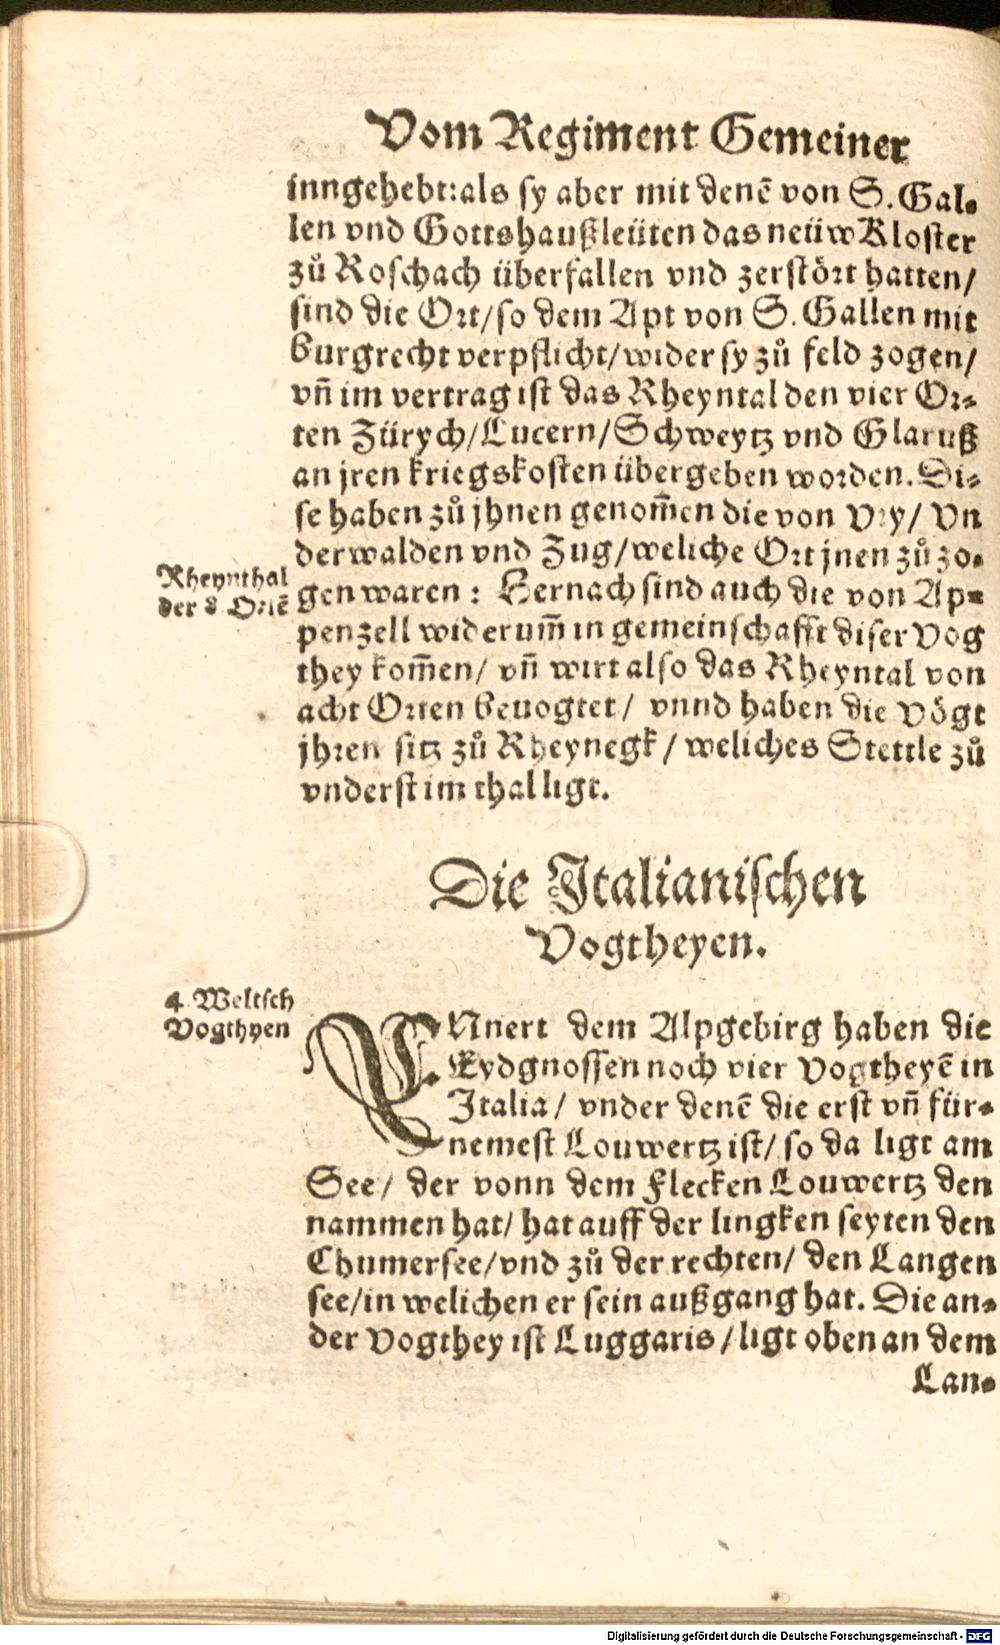 Vom Regiment Gemeiner
inngehebt: als sy aber mit denē von S. Gal⸗
len vnd Gottshaußleüten das neüw Kloster
zů Roschach überfallen vnd zerstört hatten/
sind die Ort/ so dem Apt von S. Gallen mit
burgrecht verpflicht/ wider sy zů feld zogen/
vñ im vertrag ist das Rheyntal den vier Or⸗
ten Zürych/ Lucern/ Schweytz vnd Glaruß
an jren kriegskosten übergeben worden. Di⸗
se haben zů jhnen genom̃en die von Vry/ Vn
derwalden vnd Zug/ weliche Ort jnen zů zo⸗
Rheynthal
der 8 Ortē
gen waren: Hernach sind auch die von Ap⸗
penzell widerum̃ in gemeinschafft diser Vog
they kom̃en/ vñ wirt also das Rheyntal von
acht Orten beuogtet/ vnnd haben die Vögt
jhren sitz zů Rheynegk/ weliches Stettle zů
vnderst im thal ligt.
Die Italianischen
Vogtheyen.
4 Weltsch
Vogthyen
ENnert dem Alpgebirg haben die
Eydgnossen noch vier Vogtheyē in
Italia/ vnder denē die erst vñ für⸗
nemest Louwertz ist/ so da ligt am
See/ der vonn dem Flecken Louwertz den
nammen hat/ hat auff der lingken seyten den
Chumersee/ vnd zů der rechten/ den Langen
see/ in welichen er sein außgang hat. Die an⸗
der Vogthey ist Luggaris/ ligt oben an dem
Lan⸗
Digitalisierung gefördert durch die Deutsche Forschungsgemeinschaft - DFG